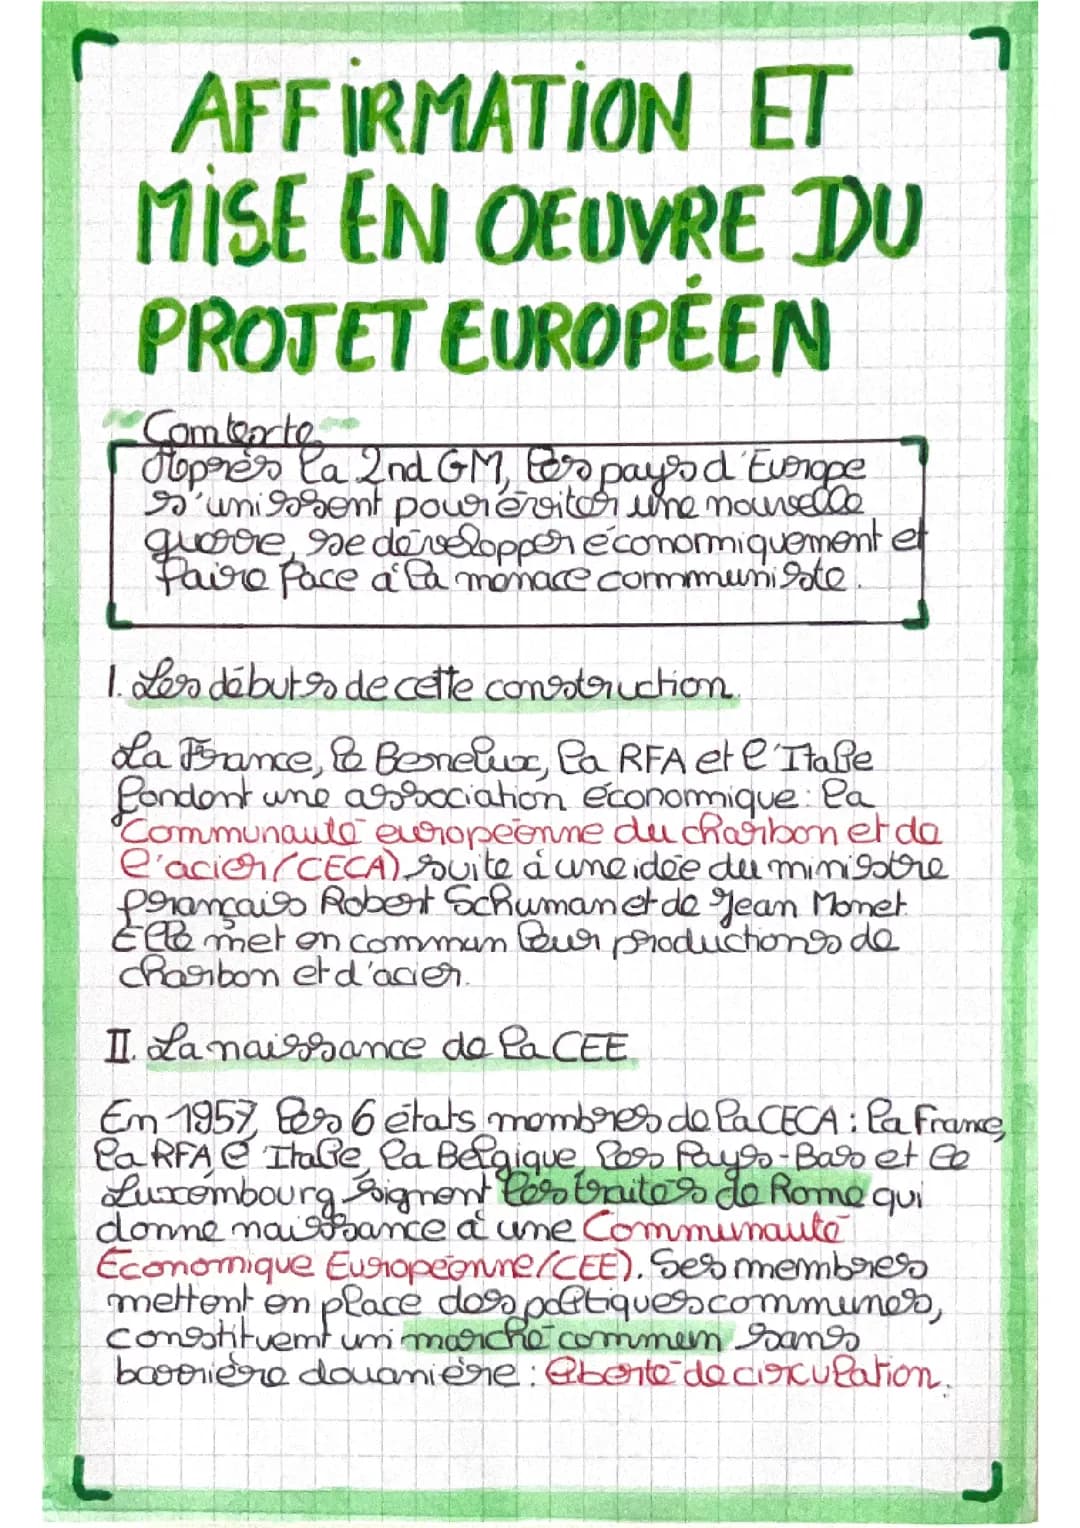 AFFIRMATION ET
MISE EN OEUVRE DU
PROJET EUROPÉEN
Contexte
Après la 2nd GM, les pays d'Europe
s'unissent pour éviter une nouvelle
guerre, se développer économiquement et
faire face à la menace communiste.
I. Les débuts de cette construction.
La France, le Benelux, la RFA et l'Italie
fondent une association économique : la
Communauté européenne du charbon et de
l'acier (CECA), suite à une idée du ministre
français Robert Schuman et de Jean Monet.
Elle met en commun leur productions de
charbon et d'acier.
II. La naissance de la CEE
En 1957, les 6 états membres de la CECA : la France,
la RFA, l'Italie, la Belgique, les Pays-Bas et le
Luxembourg, signent les traités de Rome qui
donne naissance à une Communauté
Économique Européenne (CEE). Ses membres
mettent en place des politiques communes,
constituent un marché commun sans
barrière douanière : liberté de circulation.